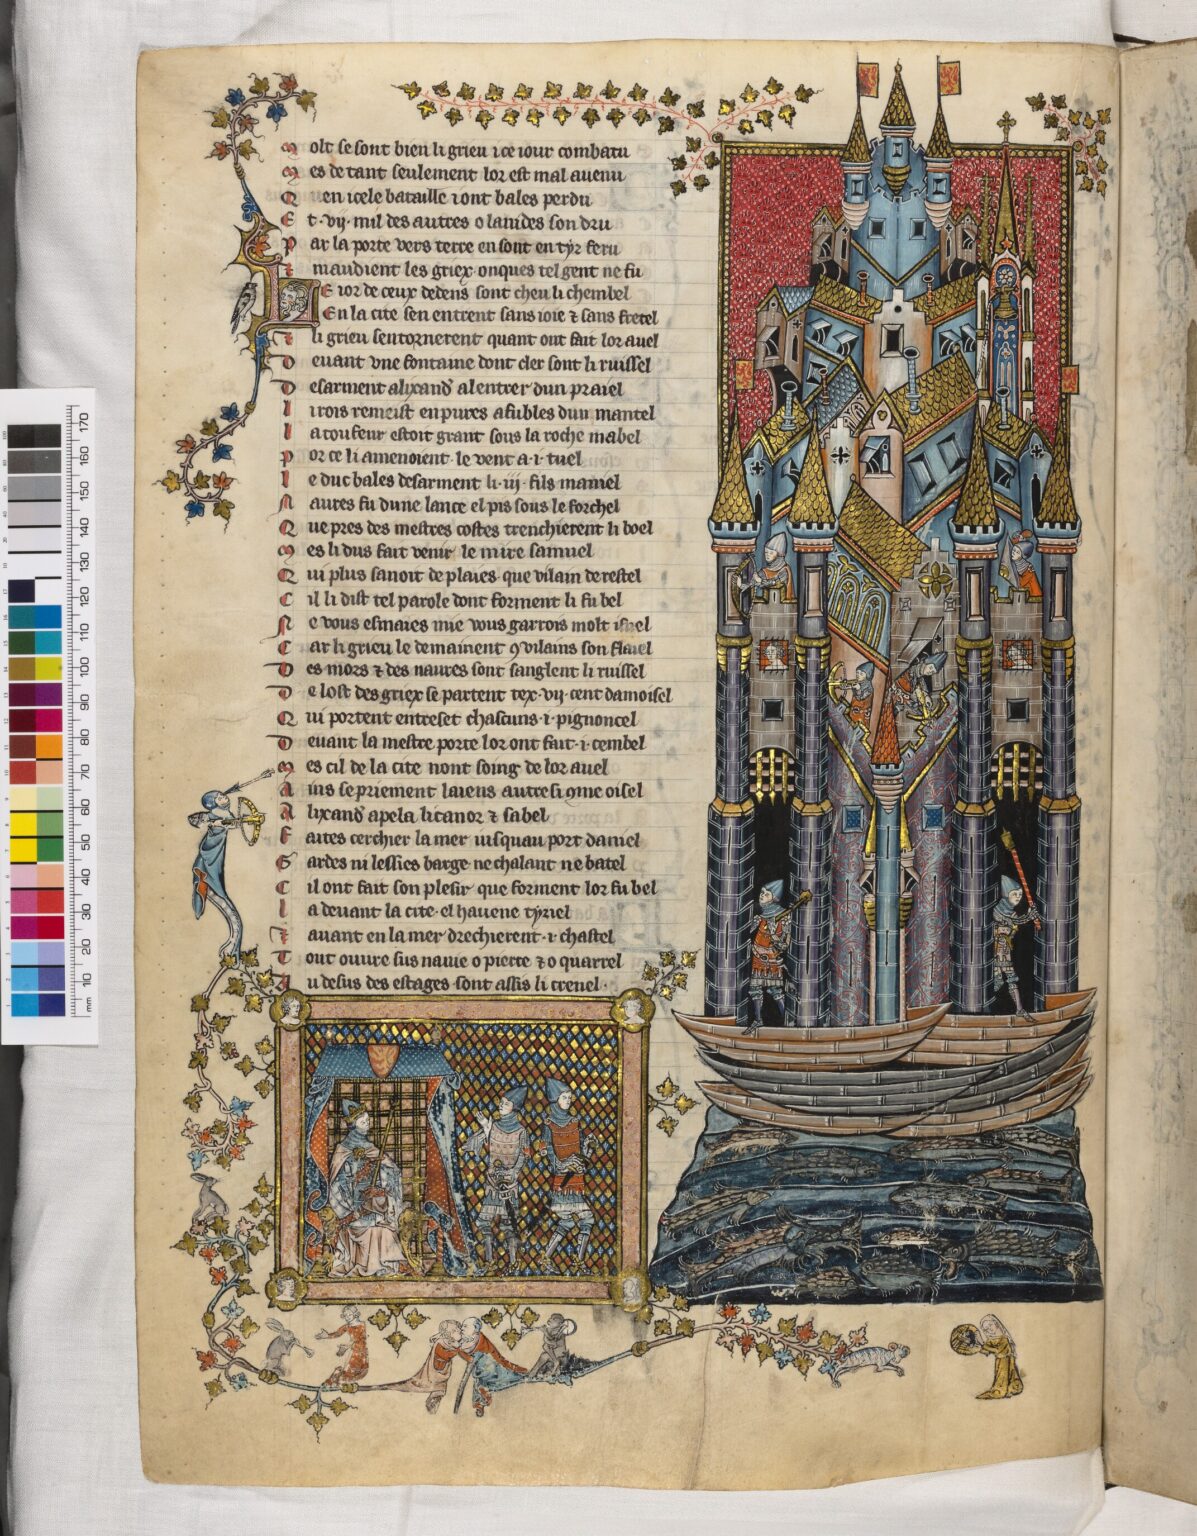 Molt se sont bien li grieu ice iour combatu
Mes de tant seulement lor est mal auenu
Qen icele bataille iont bales perdu
Et .vij. mil des autres o lanides son dru
Par la porte vers terre en sont en tyr feru
⁊ maudient les griex onques tel gent ne fu
LE ior de ceux dedens sont cheu li chembel
En la cite sen entrent sans ioie ⁊ sans fretel
⁊ li grieu sentornerent quant ont fait lor auel
Deuant vne fontaine dont cler sont li ruissel
Desarment alixand' a lentrer dun praiel
Li rois remeist en pures afubles dun mantel
La coufeur estoit grant sous la roche mabel
Por ce li amenoient le vent a .i. tuel
Le duc bales desarment li .iij. fils mamel
Naures fu dune lance el pis sous le forchel
Que pres des mestres costes trenchierent li boel
Mes li dus fait venir le mire samuel
Qui plus sauoit de plaies que vilain de restel
Cil li dist tel parole dont forment li fu bel
Ne vous esmaies mie vous garrois molt isnel
Car li grieu le demainent 9 vilains son flaiel
Des mors ⁊ des naures sont sanglent li ruissel
De lost des griex se partent tex .vij. cent damoisel
Qui portent entreset chascuns .i. pignoncel
Deuant la mestre porte lor ont fait .i. cembel
Mes cil de la cite nont soing de lor auel
Ains se priement laiens autresi 9me oisel
Alixand' apela licanor ⁊ sabel
Faites cerchier la mer iusquau port daniel
Gardes ni lessies barge ne chalant ne batel
Cil ont fait son plesir que forment lor fu bel
La deuant la cite el hauene tyriel
⁊ auant en la mer drechierent .i. chastel
Tout ouure sus nauie o pierre ⁊ o quarrel
Au desus des estages sont assis li crenel.
mm 10 20 30 40 50 60 70 80 90 100 110 120 130 140 150 160 170